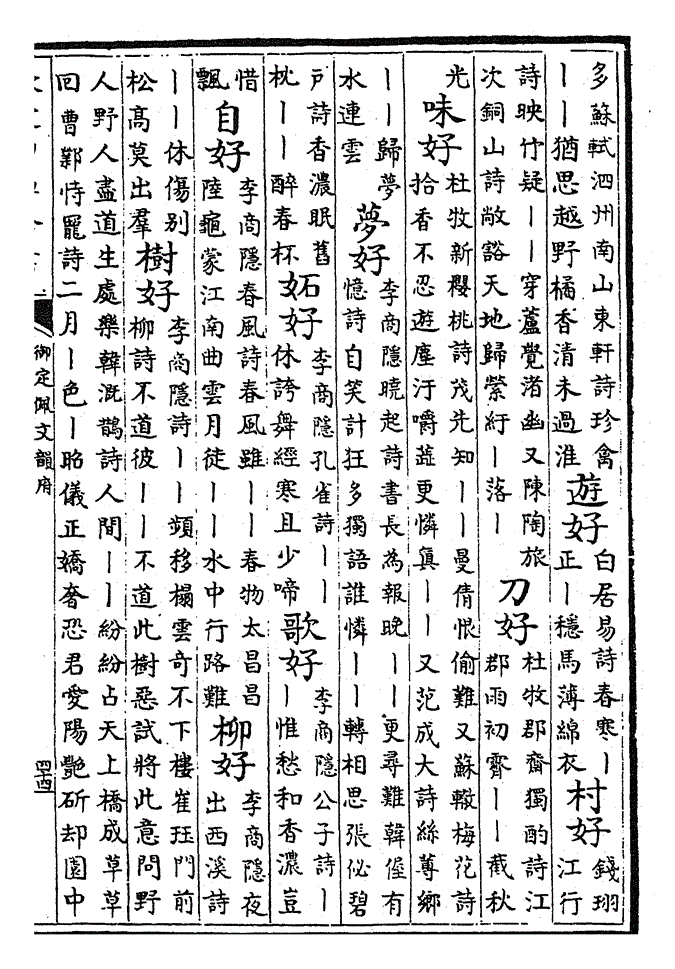 多蘇軾泗州南山東軒詩珍禽
丨丨猶思越野橘香清未過淮
遊好
白居易詩春寒丨
正丨穩馬薄綿衣
村好
錢珝
江行
詩映竹疑丨丨穿蘆覺渚幽又陳陶旅
次銅山詩敞豁天地歸縈紆丨落丨
刀好
杜牧郡齋獨酌詩江
郡雨初霽丨丨截秋
光
味好
杜牧新櫻桃詩茂先知丨丨曼倩恨偷難又蘇轍梅花詩
拾香不忍遊塵汙嚼蕋更憐真丨丨又范成大詩絲蓴鄉
丨丨歸夢
水連雲
夢好
李商隱曉起詩書長為報晚丨丨更尋難韓偓有
憶詩自笑計狂多獨語誰憐丨丨轉相思張佖碧
戶詩香濃眠舊
枕丨丨醉春杯
妬好
李商隱孔雀詩丨丨
休誇舞經寒且少啼
歌好
李商隱公子詩丨
丨惟愁和香濃豈
惜
飄
自好
李商隱春風詩春風雖丨丨春物太昌昌
陸龜蒙江南曲雲月徒丨丨水中行路難
柳好
李商隱夜
出西溪詩
丨丨休傷別
松髙莫出羣
樹好
李商隱詩丨丨頻移榻雲奇不下樓崔珏門前
柳詩不道彼丨丨不道此樹惡試將此意問野
人野人盡道生處樂韓溉鵲詩人間丨丨紛紛占天上橋成草草
回曹鄴恃寵詩二月丨色丨昭儀正嬌奢恐君愛陽艷斫却園中
御定佩文韻府
四十四